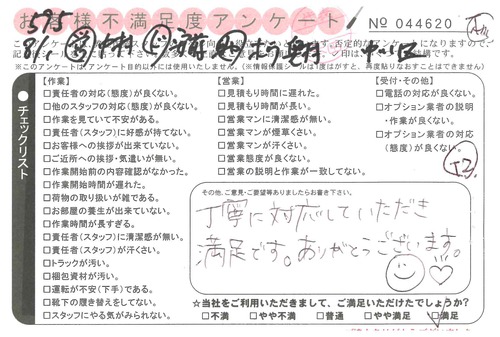 お客様不満足度アンケート
№ 044620
575
※このアンケートはアンケート目的以外には使用いたしません。(※情報保護シールは1度はがすと、再度貼りなおすことはできません)
チェックリスト
【作業】
□責任者の対応(態度)が良くない。
□他のスタッフの対応(態度)が良くない。
□作業を見ていて不安がある。
□責任者(スタッフ)に好感が持てない。
□お客様への挨拶が出来ていない。
□ご近所への挨拶・気遣いが無い。
□作業開始前の内容確認がなかった。
□作業開始時間が遅れた。
□荷物の取り扱いが雑である。
□お部屋の養生が出来ていない。
□作業時間が長すぎる。
□責任者(スタッフ)に清潔感が無い。
□責任者(スタッフ)が汗くさい。
□トラックが汚い。
□梱包資材が汚い。
□運転が不安(下手)である。
□靴下の履き替えをしてない。
□スタッフにやる気がみられない。
【営業】
□見積もり時間に遅れた。
□見積もり時間が長い。
□営業マンに清潔感が無い。
□営業マンが煙草くさい。
□営業マンが汗くさい。
□営業態度が良くない。
□営業の説明と作業が一致してない。
【受付・その他】
□電話の対応が良くない。
□オプション業者の説明
・作業が良くない。
□オプション業者の対応
(態度)が良くない。
その他、ご意見・ご要望等ありましたらお書き下さい。
丁寧に対応していただき
満足です。ありがとうございます。
☆当社をご利用いただきまして、ご満足いただけたでしょうか?
□不満 □やや不満 □普通 □やや満足 □満足